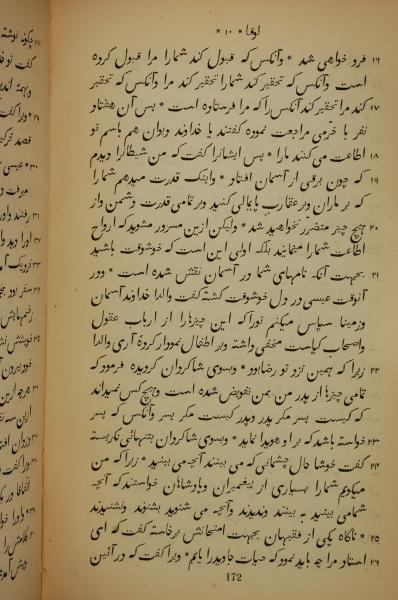 لوقا * ۱۰ *
۱۶ فرو خواهی شد * وآنکس که قبول کند شمارا مرا قبول کرده
است وآنکس که تحقیر کند شمارا تحقیر کند مرا وآنکس که تحقیر
۱۷ کند مرا تحقیر کند آنکس را که مرا فرستاده است * پس آن هفتاد
نفر با خرمی مراجعت نموده گفتند یا خداوند دیوان هم باسم تو
۱۸ اطاعت می کنند مارا * پس ایشانرا گفت که من شیطانرا دیدم
۱۹ که چون برقی از آسمان افتاد * واینک قدرت میدهم شمارا
که بر ماران وعقارب پایمالی کنید وبر تمامی قدرت دشمن واز
۲۰ هیچ چیز متضرر نخواهید شد * ولیکن ازین مسرور مشوید که ارواح
اطاعت شمارا مینمایند بلکه اولی این است که خوشوقت باشید
۲۱ بجهت آنکه نامهای شما در آسمان نقش شده است * ودر
آنوقت عیسی در دل خوشوقت گشته گفت والدا خداوند آسمان
وزمینا سپاس میکنم تورا که این چیزها را از ارباب عقول
واصحاب کیاست مخفی داشته وبر اطفال نمودار کردهٔ آری والدا
۲۲ زیرا که همین نزد تو رضا بود * وبسوی شاکردان کردیده فرمود که
تمامی چیزها از پدر من بمن تفویض شده است وهیچ کس نمیداند
که کیست پسر مکر پدر وپدر کیست مکر پسر وآنکس که پسر
۲۳ خواسته باشد که بر او هویدا نماید * وبسوی شاکردان بتنهائی نکریسته
۲۴ گفت خوشا حال چشمانی که می بینند آنچه می بینید * زیرا که من
میگویم شمارا بسیاری از پیغمبران وپادشاهان خواستند که آنچه
شما می بینید به بینند وندیدند وآنچه می شنوید بشنوند ونشنیدند
۲۵ * ناگاه یکی از فقیهان بجهت امتحانش برخاسته گفت که ای
۲۶ استاد مرا چه باید نمود که حیات جاوید را یابم * ویرا گفت که در آئین
172